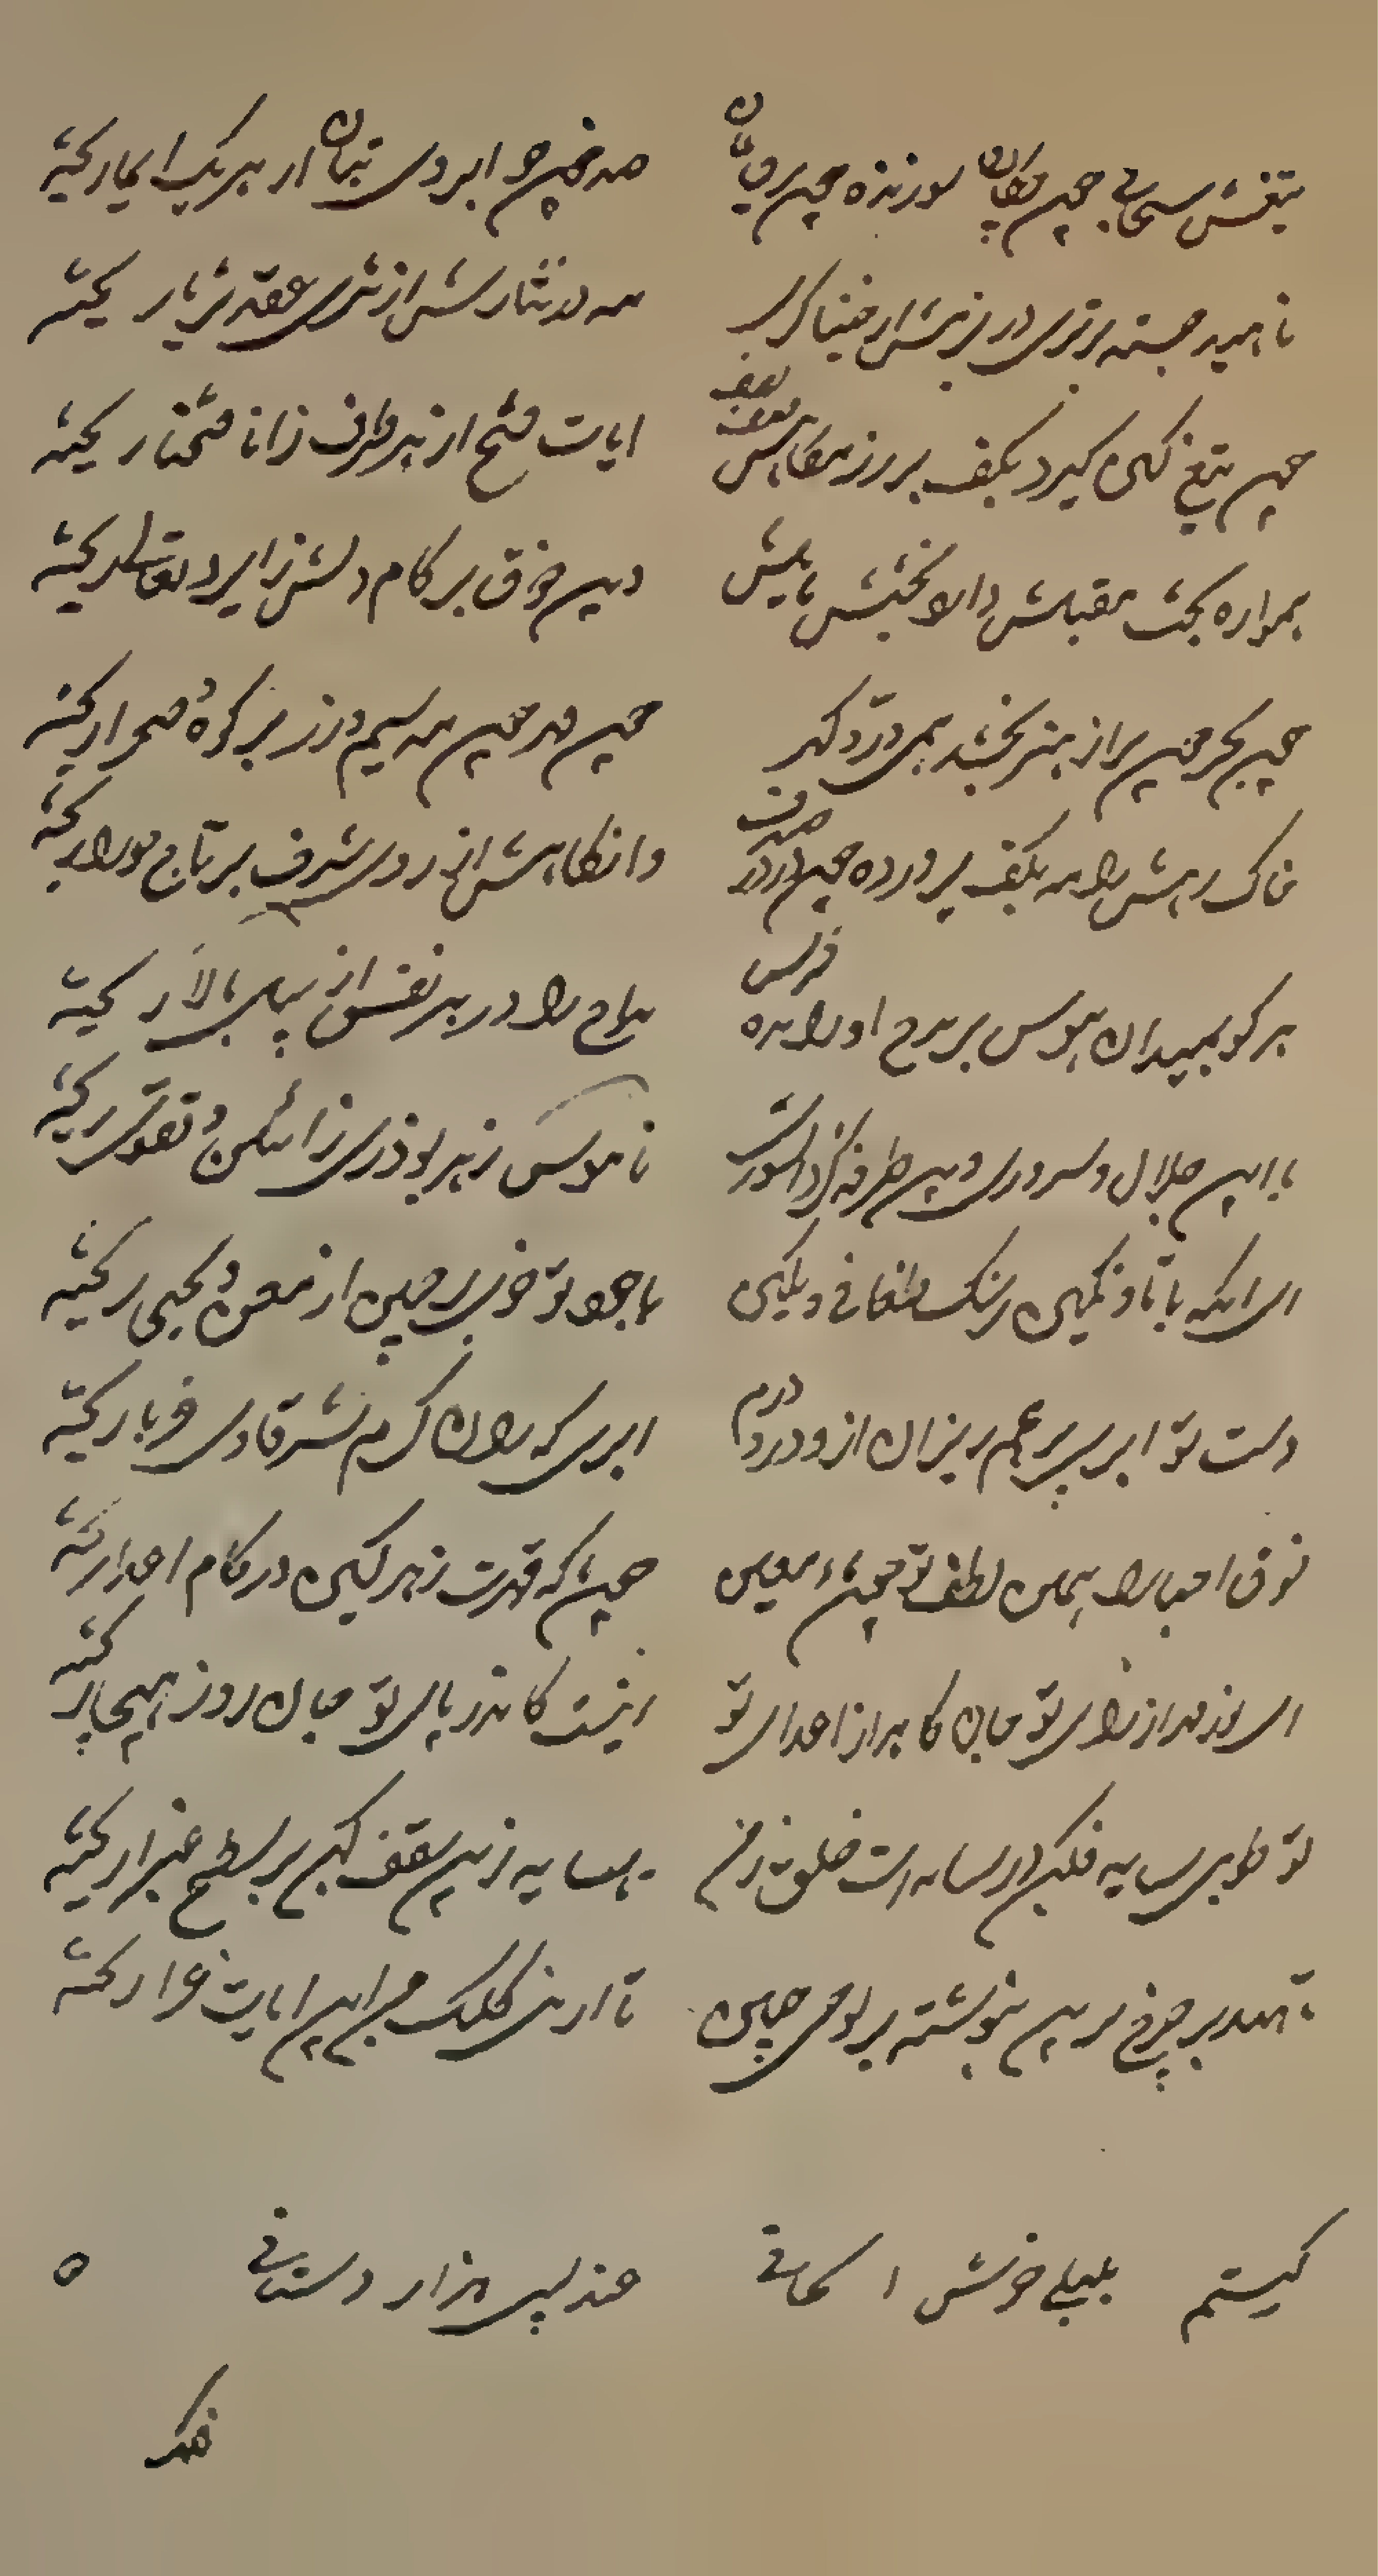 تیغش سحابی چون دخان سوزنده چون برق یمان صد خم چو ابروی بتان از هر یک ایما ریخته
ناهید جسته برتری در بزمش از خنیاگری مه در نثارش از ثری عقد ثریا ریخته
چون تیغ کین گیرد بکف بر روز هیجا بهر صف ایات فتح از هر طرف ز انا فتحنا ریخته
همواره بخت مقبلش والا بخشش مایلش وین ذوق بر کام دلش ز ایزد تعالی ریخته
چون بحر چون بر از هنر بخشد همی در و گهر چون مهر چون مه سیم و زر بر کوه و صحرا ریخته
خاک رهش را مه بکف پرورده چون در در صدف وانگاهش از روی شرف بر تاج دارا ریخته
هر کو بمیدان هوس بر مدح او رانده فرس مداح را در هر نفس از پای بالا ریخته
با این جلال و سروری وین طرفه کز داد آوری ناموس زهر بوذری ز آیین و تقوی ریخته
ای انکه با تاو نگین رشک طغان و تگین با جود تو خون بر جبین از معن و یحیی ریخته
دست تو ابر پر عمم ریزان از و در و درم ابری که باران کرم شرقا و غربا ریخته
ذوق احبا را همین لطف تو چون ماء معین چونانکه قهرت زهر کین در کام اعدا ریخته
ای نزد راز رای تو جان کاهد از اعدای تو نیست کاندر پای تو جان روز هیجا ریخته
تو طوبی سایه فکن در سایه ات خلق زمن نه سایه زین سقف کهن بر سطح غبرا ریخته
تا بر چرخ برین بنوشته بر لوح جبین تا از نی کلک من این ابیات غرا ریخته
کیستم بلبلی خوش الحانی عندلیب هزار دستانی ۵